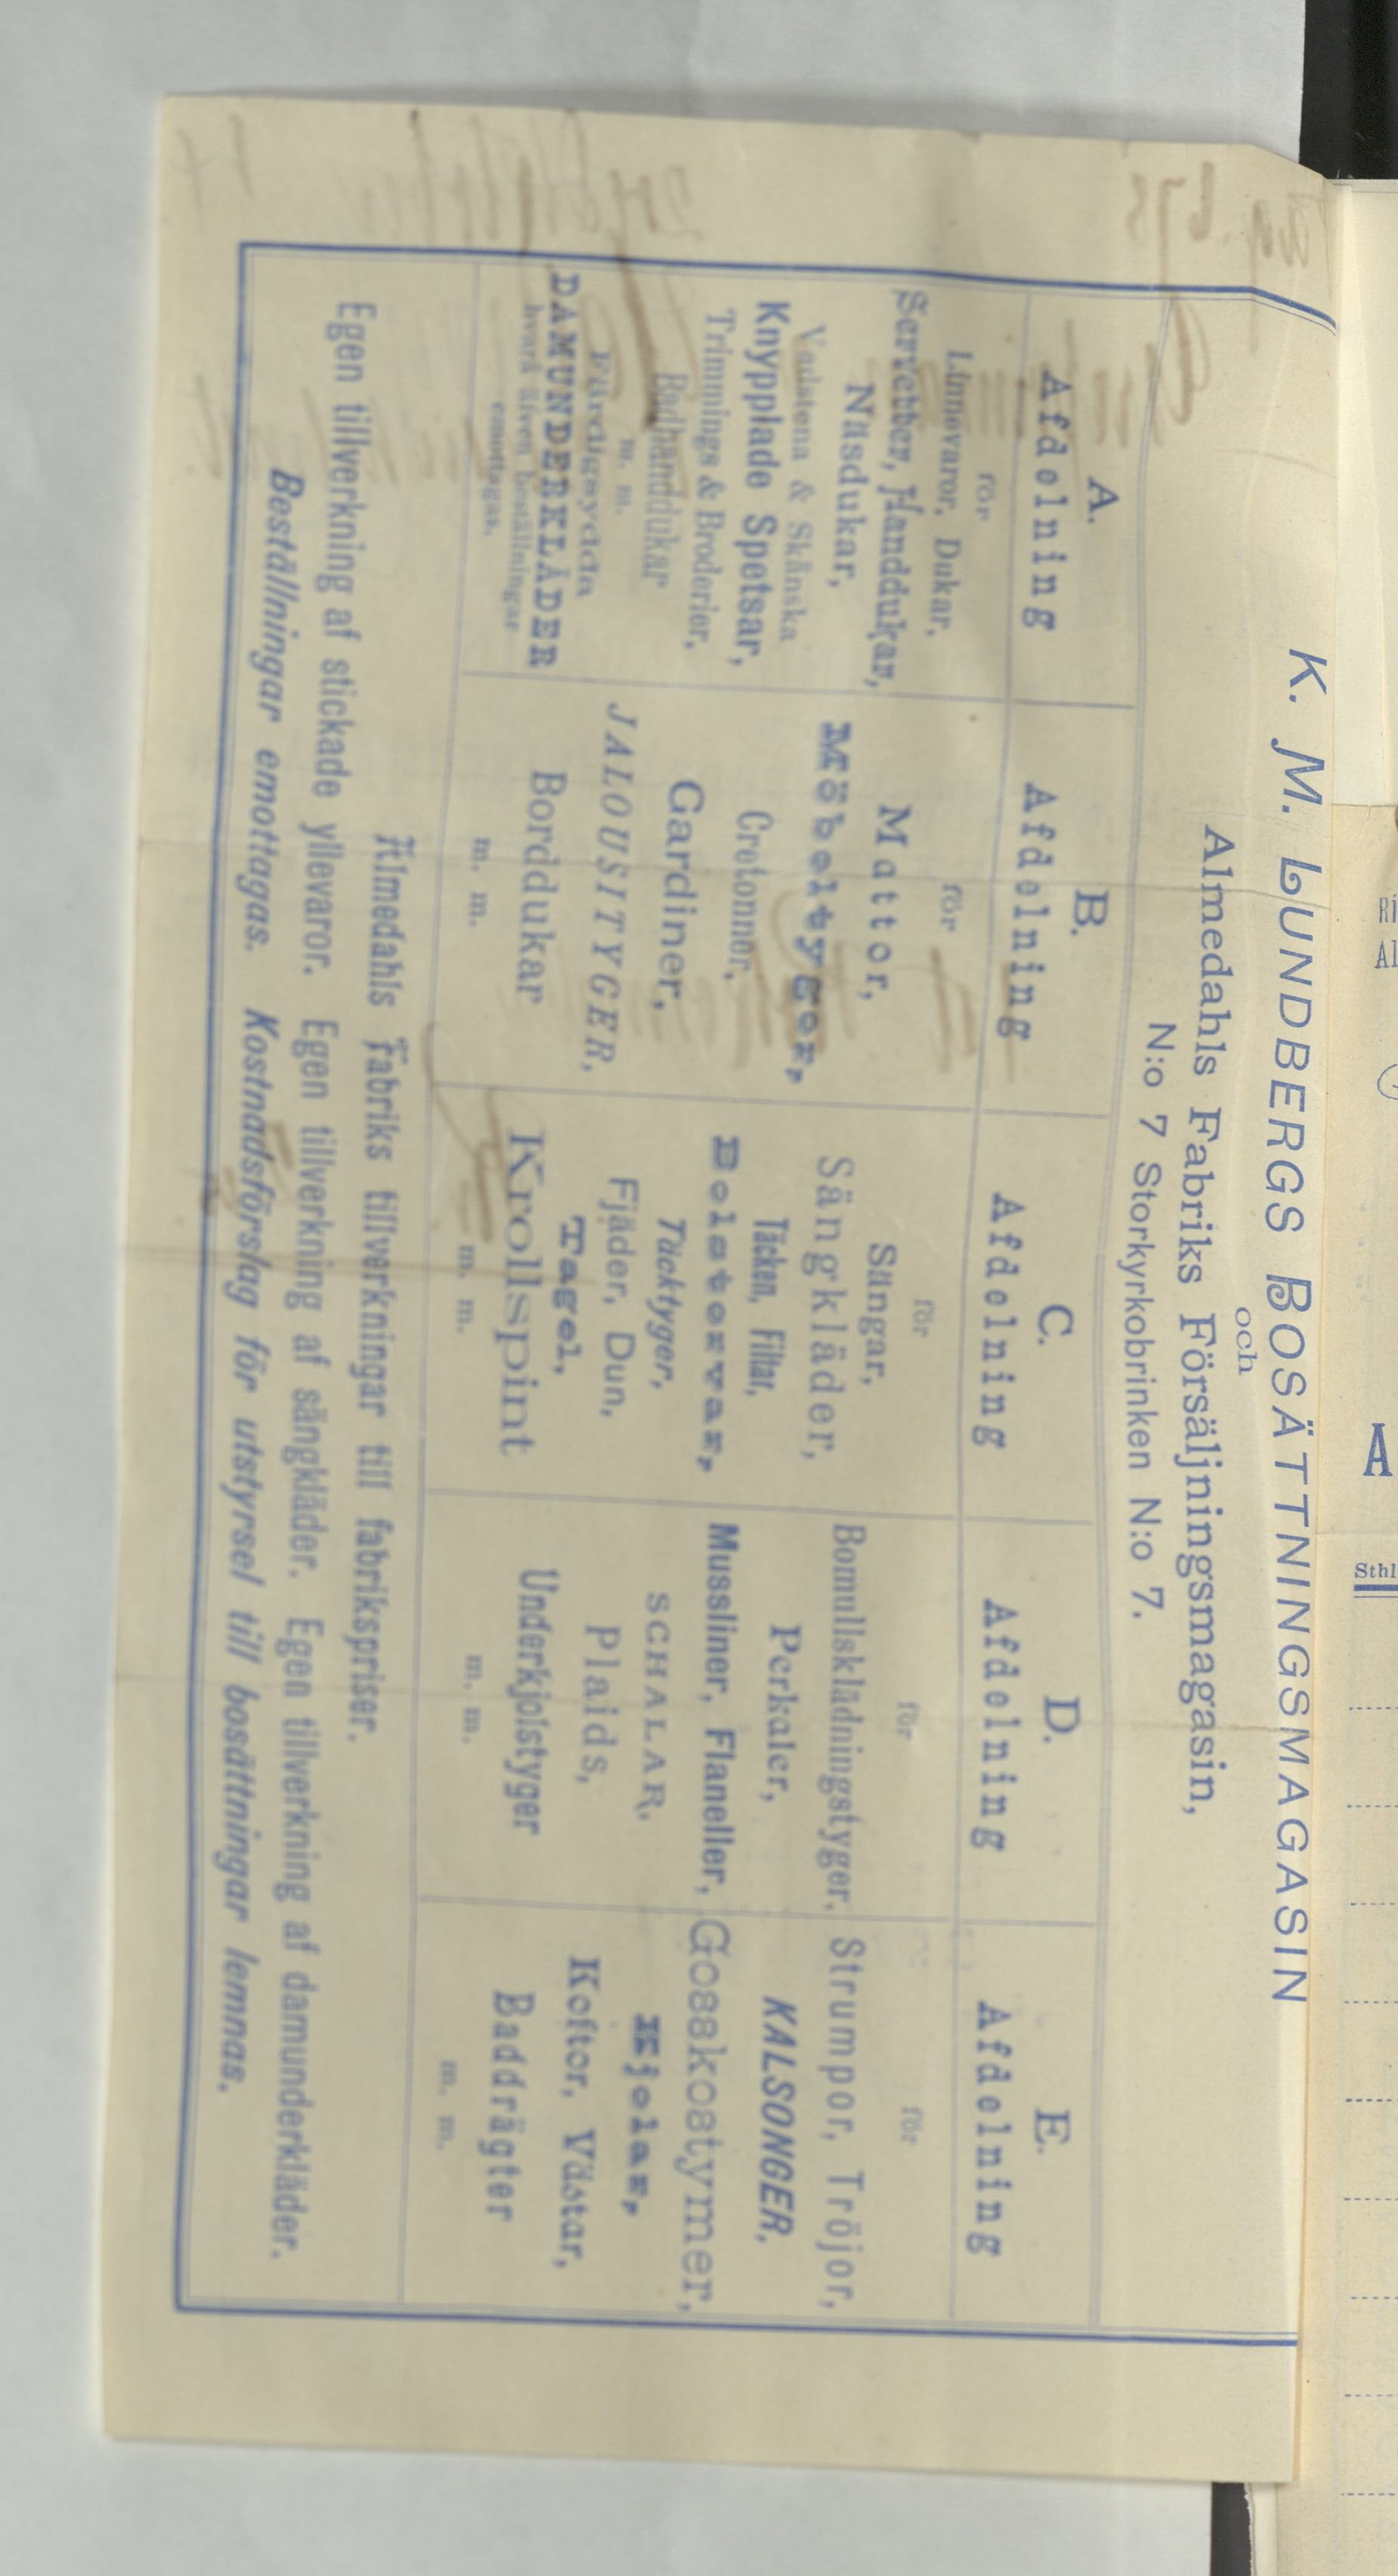 K. M. LUNDBERGS BOSÄTTNINGSMAGASIN
och
Almedahls Fabriks Försäljningsmagasin,
N:o 7 Storkyrkobrinken N:o 7.
A.
Afdelning
för
Linnevaror, Dukar,
Servetter, Handdukar,
Näsdukar,
Vadstena & Skånska
Knypplade Spetsar,
Trimnings & Broderier,
Badhanddukar
m. m.
Färdigsydda
DAMUNDERKLÄDER
hvarå äfven beställningar
emottagas.
B.
Afdelning
för
Mattor,
Möbeltyger,
Cretonner,
Gardiner,
JALOUSITYGER,
Borddukar
m. m.
C.
Afdelning
för
Sängar,
Sängkläder,
Täcken, Filtar,
Bolstervar,
Täcktyger,
Fjäder, Dun,
Tagel,
Krollspint
m. m.
D.
Afdelning
för
Bomullsklädningstyger,
Perkaler,
Mussliner, Flaneller,
SCHALAR,
Plaids,
Underkjolstyger
m. m.
E.
Afdelning
för
Strumpor, Tröjor,
KALSONGER,
Gosskostymer,
Kjolar,
Koftor, Västar,
Baddrägter
m. m.
Almedahls Fabriks tillverkningar till fabrikspriser.
Egen tillverkning af stickade yllevaror. Egen tillverkning af sängkläder. Egen tillverkning af damunderkläder.
Beställningar emottagas. Kostnadsförslag för utstyrsel till bosättningar lemnas.
Sthl